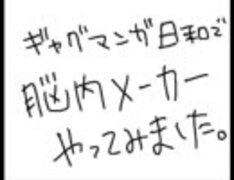 ギャグマンガ日和で
脳内メーカー
やってみました。